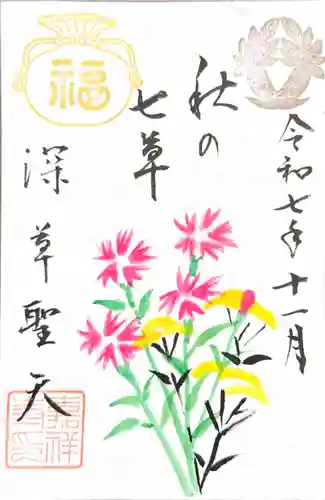 令和七年十一月
秋の
七草
福
深草聖天
嘉祥